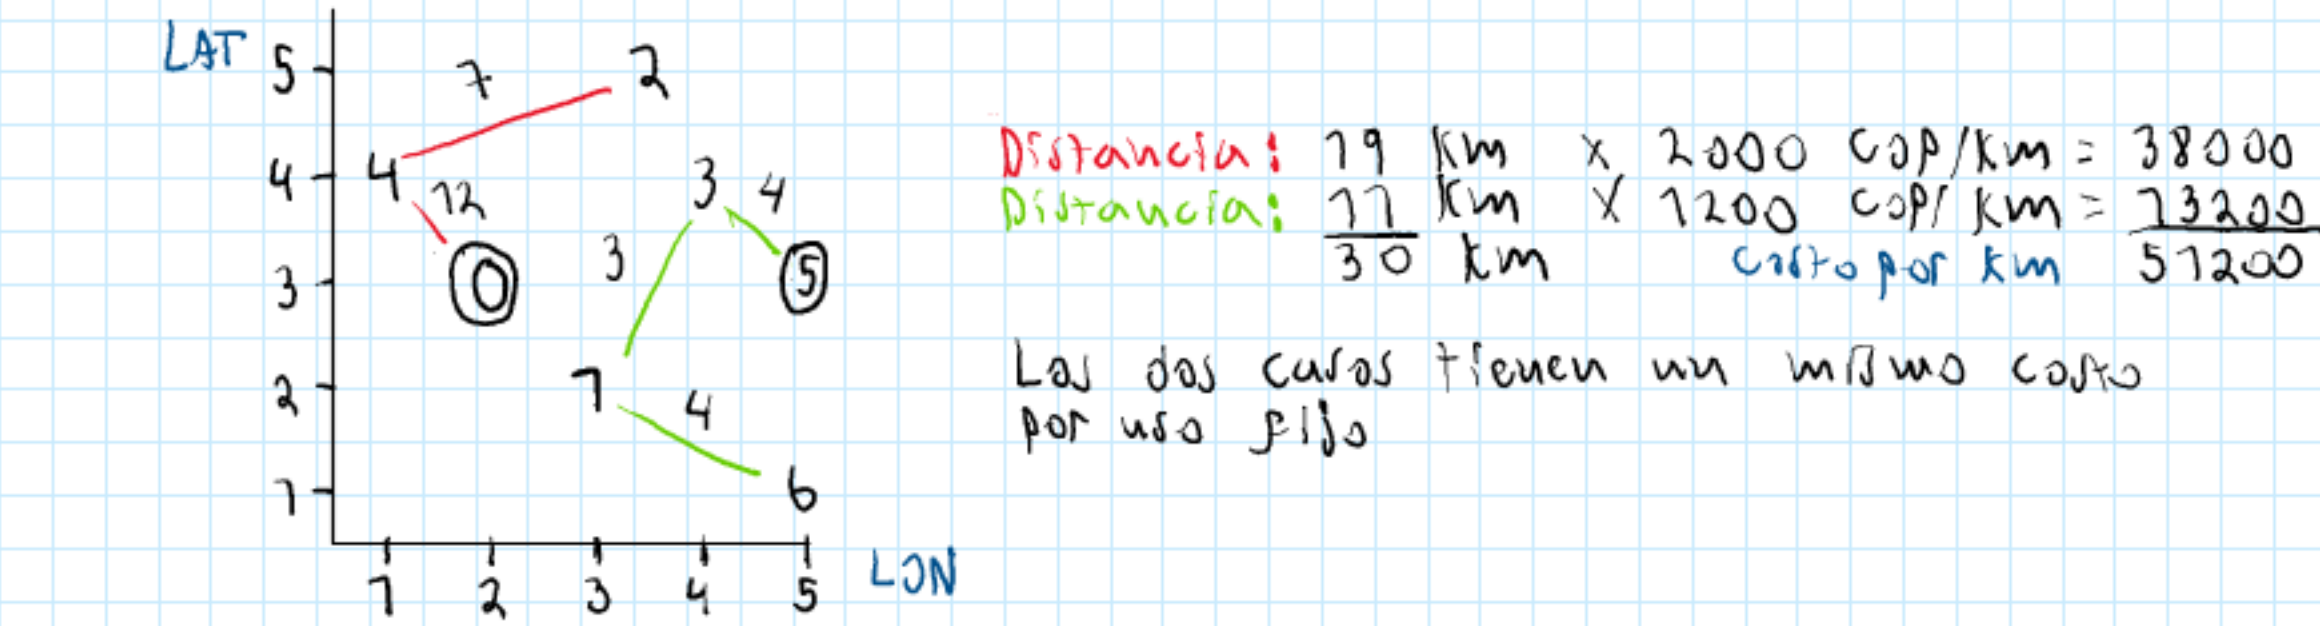 LAT
5
7
2
4
4
12
3
4
3
0
3
5
2
1
4
1
6
1
2
3
4
5
LON
Distancia: 19 km x 2000 COP/km = 38000
Distancia: 11 km x 1200 COP/km = 13200
30 km costo por km 51200
Los dos casos tienen un mismo costo
por uso fijo